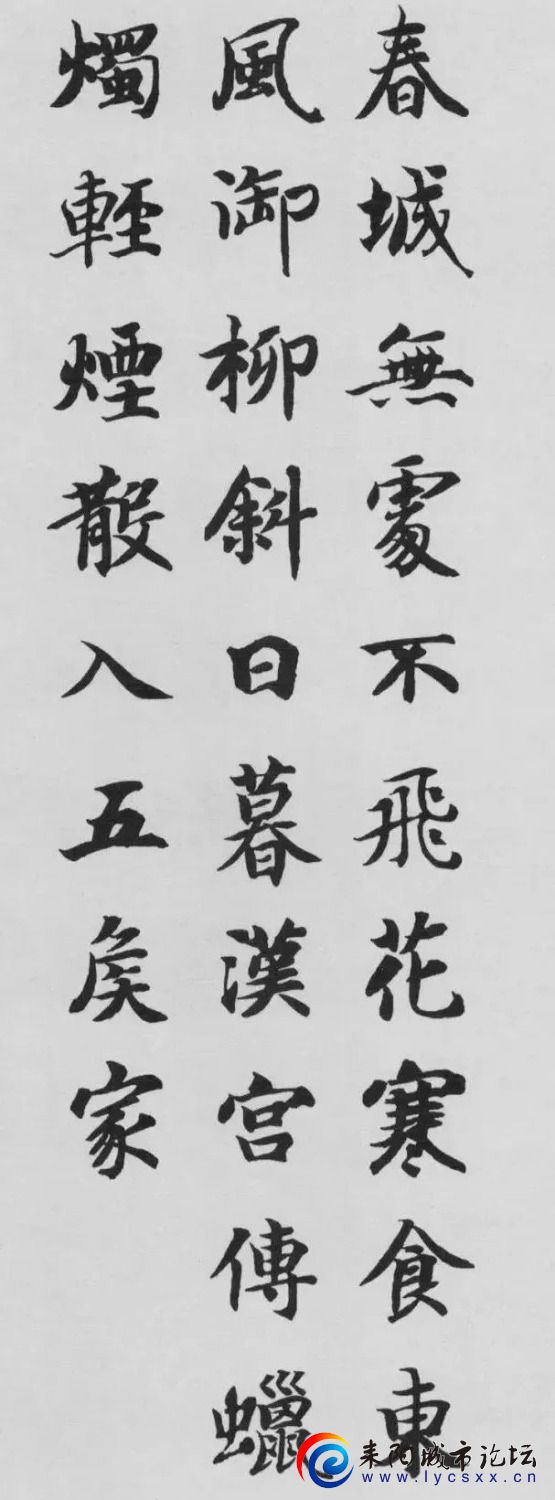 春城無處不飛花寒食東
風御柳斜日暮漢宮傳蠟
燭輕煙散入五侯家
耒阳城市论坛
www.lycsxx.cn